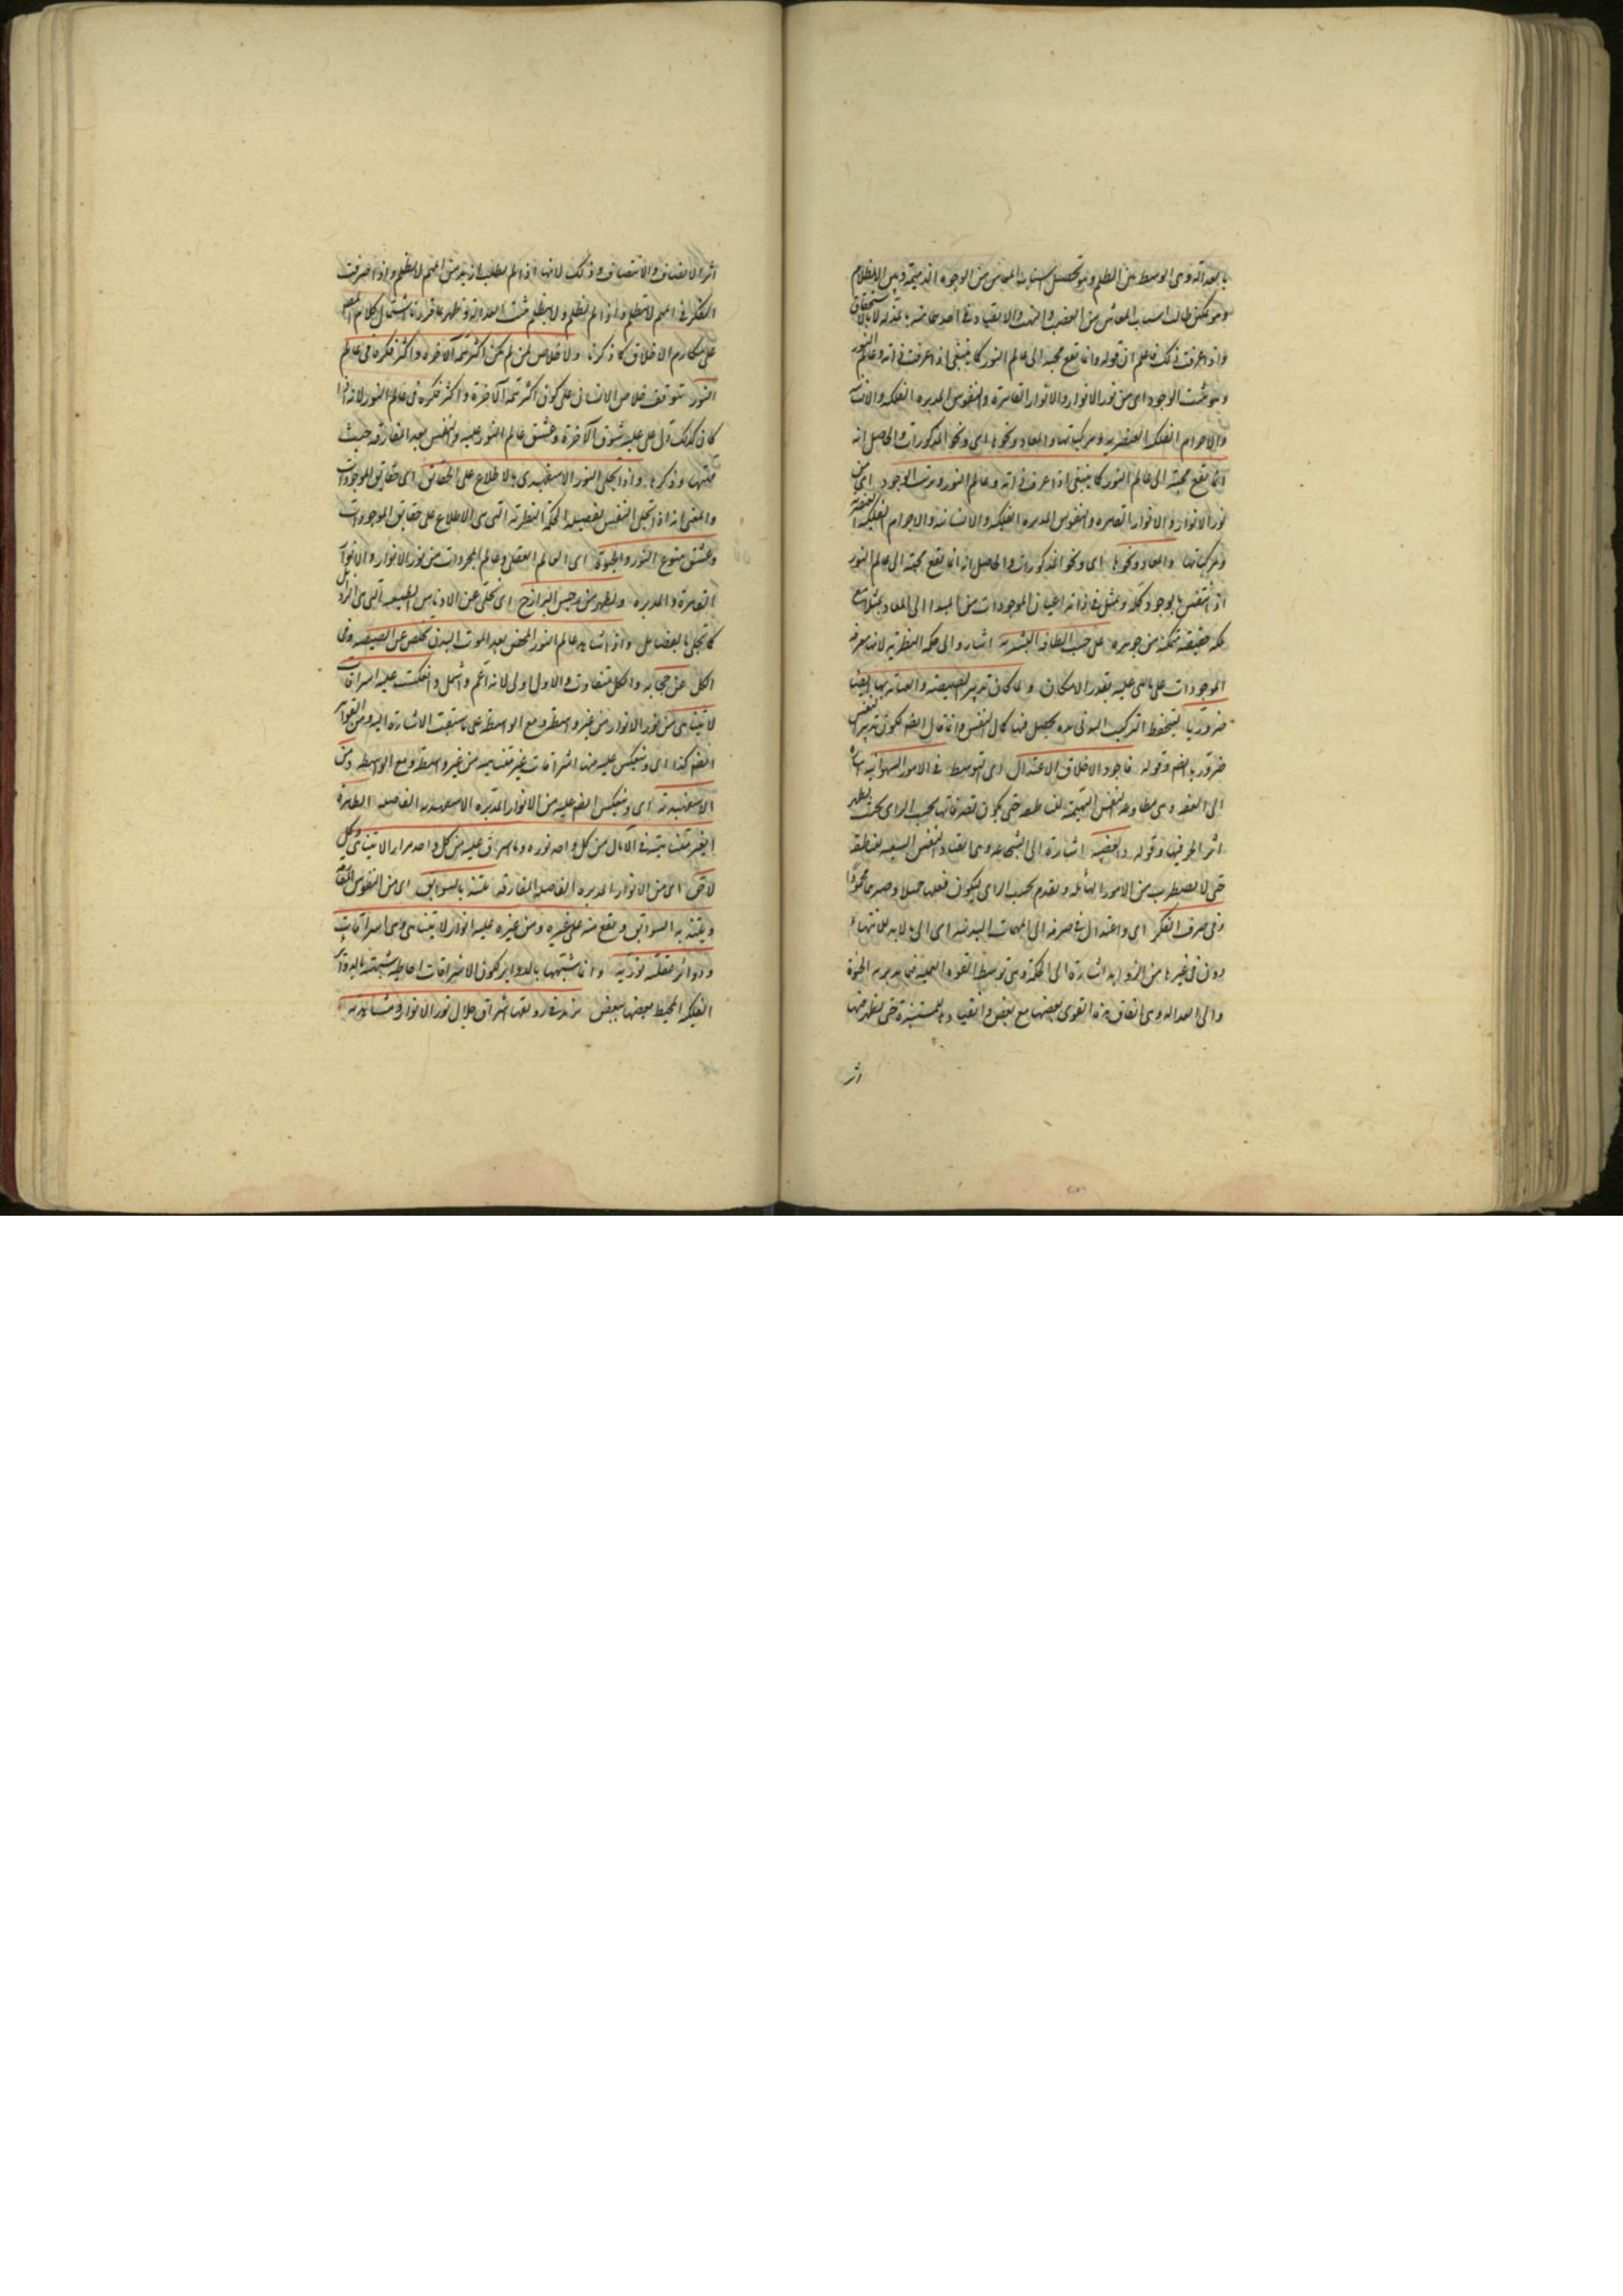 بالعدالة وهى الوسط بين الظلم وهو تحصيل اسباب المعاش من الوجوه الذميمة وبين الانظلام
وهو تمكن طالب اسباب المعاش من الغصب والنهب والانقياد فى
واذا عرفت ذلك فاعلم ان قوله وانما تقع محبته الى عالم النور كما ينبغى اذا عرفت ذاته وعالم النور
وترتيب الوجود اى من نور الانوار والانوار القاهرة والنفوس المدبرة الفلكية والانسانية
والاجرام الفلكية العنصرية ومركباتها والمعاد ونحوها اى ونحو المذكورات والحاصل انه
انما تقع محبته الى عالم النور كما ينبغى اذا عرف ذاته وعالم النور وترتيب الوجود اى من
نور الانوار والانوار القاهرة والنفوس المدبرة الفلكية والانسانية والاجرام الفلكية العنصرية
ومركباتها والمعاد ونحوها اى ونحو المذكورات والحاصل انه انما تقع محبته الى عالم النور
اذا انتقش بالوجود كله وتمثل فى ذاته اعيان الموجودات من المبدا الى المعاد تمثلا مع
ملكة حقيقية متمكنة من جوهره على حسب الطاقة البشرية اشار الى الحكمة النظرية لانها معرفة
الموجودات على ما هى عليه بقدر الامكان ولما كان تدبير الصيصية والعناية بها ايضا
ضروريا ليتحفظ التركيب البدنى مدة يحصل فيها كمال النفس وانما قال ايضا لكون تدبير النفس
ضروريا ايضا وقوله فاجود الاخلاق الاعتدال اى التوسط فى الامور الشهوانية اشارة
الى العفة وهى مطاوعة النفس البهيمية للناطقة حتى يكون تصرفاتها بحسب الراى بحيث يظهر
اثر الحرية فيها وقوله والغضبية اشارة الى الشجاعة وهى انقياد النفس السبعية للناطقة
حتى لا يضطرب من الامور الهائلة ويقدم بحسب الراى ليكون فعلها جميلا وصبرها محمودا
وفى صرف الفكر اى واعتدال فى صرفه الى المهمات البدنية اى الى ما لا بد للبدن منها
دون غيرها من الزوايد اشارة الى الحكمة وهى توسط القوة العملية فيما يدبر به الحيوة
والى العدالة وهى اتفاق هذه القوى بعضها مع بعض وانقيادها للمميزة حتى يظهر فيها
اثر
اثر الانصاف والانتصاف وذلك لانها اذا لم يطلب ازيد من المهم لا يظلم واذا صرفت
الفكر فى المهم لا ينظلم واذا لم يظلم ولا ينظلم ثبت العدالة وظهر بما قررنا اشتمال كلام المصنف
على مكارم الاخلاق كما ذكرنا ولا خلاص لمن لم يكن اكثر همه الآخرة واكثر فكره فى عالم
النور يتوقف خلاص الانسان على كون اكثر همه الآخرة واكثر فكره فى عالم النور لانه اذا
كان كذلك دل على غلبة شوق الآخرة وعشق عالم النور عليه والنفس بعد المفارقة حيث
همتها وذكرها واذا تجلى النور الاسفهبدى بالاطلاع على الحقايق اى حقايق الموجودات
والمعنى انه اذا تجلى النفس بفضيلة الحكمة النظرية التى هى الاطلاع على حقايق الموجودات
وعشق ينبوع النور والحيوة اى العالم العقلى وعالم المجردات من نور الانوار والانوار
القاهرة والمدبرة وتطهر من رجس البرازخ اى تخلى عن الادناس الطبيعية التى هى الرذايل
كما تجلى بالفضايل واذا شاهد عالم النور المحض بعد الموت البدن تخلص عن الصيصية وفى
الكل عن حجابه والكل متفاوت والاولى اولى لانه اعم واشمل وانعكست عليه اشراقات
لا تتناهى من نور الانوار من غير واسطة ومع الواسطة على ما سبقت الاشارة اليه ومن القواهر
ايضا كذا اى وينعكس عليه منها اشراقات غير متناهية من غير واسطة ومع الواسطة ومن
الاسفهبدية اى وينعكس ايضا عليه من الانوار المدبرة الاسفهبدية الفاضلة الطاهرة
الغير متناهية فى الآباد من كل واحد نوره وما اشرق عليه من كل واحد مرارا لا تتناهى وكل
لاحق اى من الانوار المدبرة الفاضلة المفارقة يلتذ بالسوابق اى من النفوس المفارقة
ويلتذ به السوابق ويقع منه على غيره ومن غيره عليه انوار لا تتناهى وهى اشراقات
ودوائر عقلية نورية وانما شبهها بالدواير لكون الاشراقات المحيطة شبيهة بالدواير
الفلكية المحيط بعضها ببعض يزيد رونقها اشراق جلال نور الانوار ومشاهدته